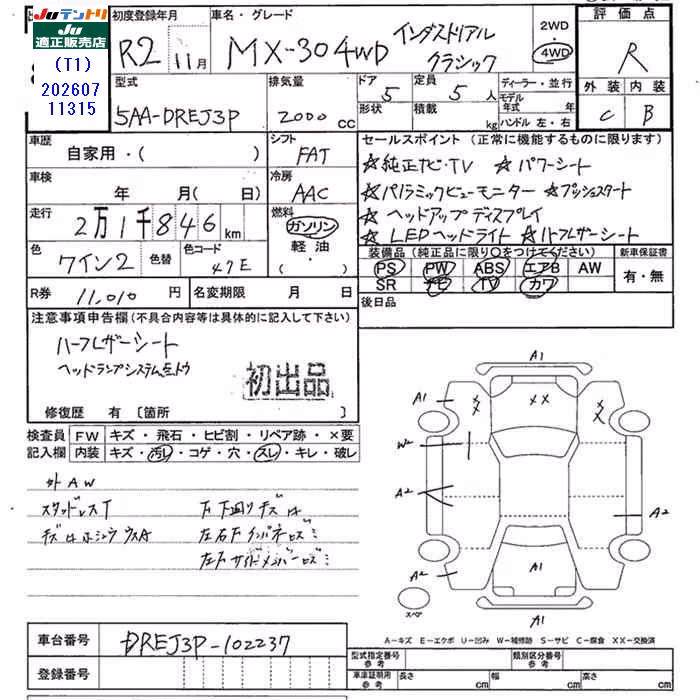 Juテントリ
Ju
適正販売店
(T1)
202607
11315
初度登録年月
R2 11月
車名・グレード
MX-30 4WD インダストリアル
クラシック
2WD
・
4WD
評価点
R
外装 内装
C B
型式
5AA-DREJ3P
排気量
2000 cc
ドア 5
形状
定員 5 人
積載 kg
ディーラー・並行
モデル
年式 年
ハンドル 左・右
車歴
自家用・( )
シフト
FAT
車検
年 月(日)
冷房
AAC
走行
2万1千846 km
燃料
ガソリン
軽油
( ・ )
色
ワイン2
色替
色コード
47E
R券 11,010 円
名変期限 月 日
セールスポイント (正常に機能するものに限ります)
☆純正ナビ・TV ☆パワーシート
☆パノラミックビューモニター ☆プッシュスタート
☆ヘッドアップディスプレイ
☆LEDヘッドライト ☆ハーフレザーシート
装備品 (純正品に限り○をつけてください)
新車保証書
PS PW ABS エアB AW
SR ナビ TV カワ
有・無
後日品
注意事項申告欄(不具合内容等は具体的に記入して下さい)
ハーフレザーシート
ヘッドランプシステム左トウ
初出品
修復歴 有 [箇所 ]
検査員
記入欄
FW キズ・飛石・ヒビ割・リペア跡・×要
内装 キズ・汚レ・コゲ・穴・スレ・キレ・破レ
外AW
スタッドレスT
キズ
下下廻りキズ
左右下インパネ
左下サイドメンバー
A1
A1
XX
XX
XX
W2
A2
A2
A2
A1
A1
スペア
A-キズ E-エクボ U-凹み W-補修跡 S-サビ C-腐食 XX-交換済
車台番号 DREJ3P-102237
登録番号
型式指定番号
参考
類別区分番号
参考
車庫証明用
参考
長さ cm
幅 cm
高さ cm